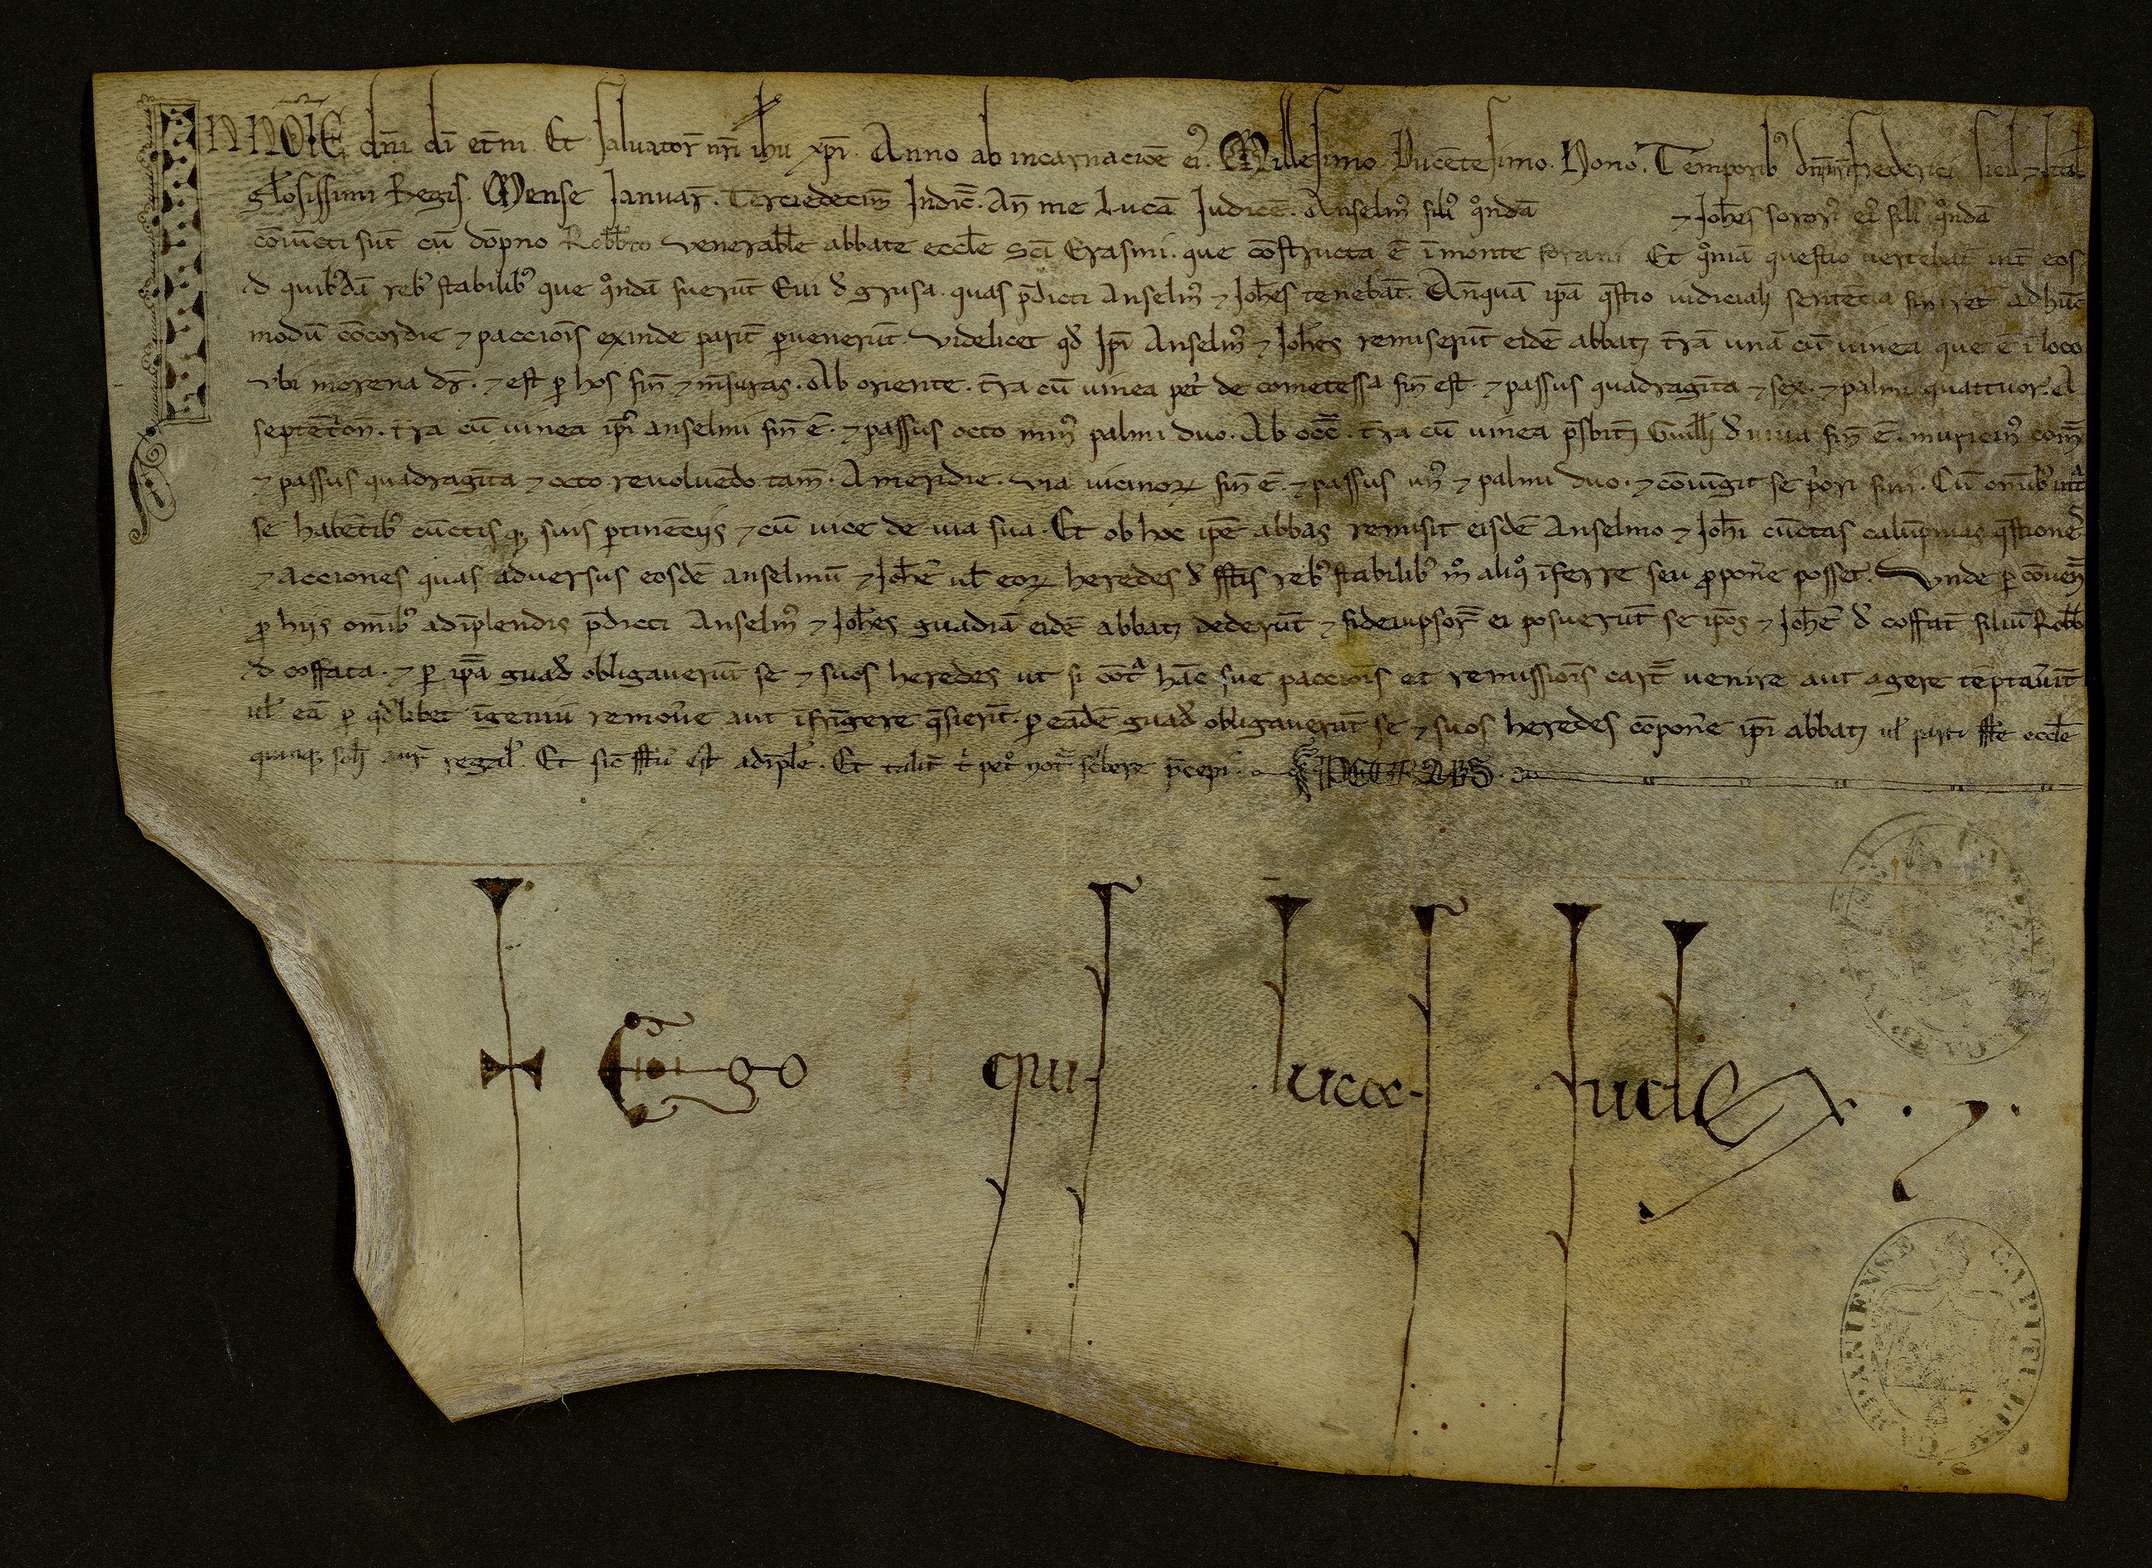 IN NOIE dni di etni. Et Saluator nri ihu xpi. Anno ab incarnacioe ei. Millesimo Ducetesimo. Nono. Temporib dni nri frederici Sicil et Ital
glosissimi Regis. Mense Januar. Terciedecim Indic. An me Lucā Iudicē. Anselm fili qondā et Johes soror ei fili qondā
coiucti sūt cū dopno Robbto venerabile abbate eccle Sci Erasmi. que cōstructa ē ī monte Et qoniā questio vertebat int eos
d quibdā reb stabilib que qondā fuerūt Eui d Grusa. quas pdicti Anselm et Johes tenebāt. Anquā ipa qstio iudiciali sentētia finiret adhūc
modū cōcordie et paccionis exinde parit puenerūt. Videlicet qd Ipi Anselm et Johes remiserūt eidē abbatj trā unā cū vinea que ē ī loco
ubi morena dr. et est p hos fin et mēsuras. Ab oriente. tra cū vinea pet de cometessa fin est. et passus quadragīta et sex. et palmi quattuor. A
septētrion. tra cū vinea ipi anselmi fin ē. et passus octo min palmi duo. Ab occ. tra cū vinea psbitj Guillj d fin ē. muricin com
et passus quadragīta et octo revoluēdo tam. A meridie. via vicinor fin ē. et passus un et palmi duo. et cōiūgit se priori fini. Cū omib īt
se habētib cūctisq suis ptinētijs et cū vice de via sua. Et ob hoc ipe abbas remisit eisdē Anselmo et Johi cūctas calūpnias qstiones
et acciones quas adversus eosdē anselmū et Johē ul eor heredes d sstis reb stabilib mo aliqo īferre seu pponere posset. Unde p cōven
p hijs omib adīplendis pdicti Anselm et Johes guadiā eidē abbatj dederūt et fideiupsor ei posuerūt se ipos et Johē d coffat filiū Robb
d coffata. et p ipā guad obligaverūt se et suos heredes ut si cōt hāc sue paccionis et remissionis cart venire aut agere tēptaverīt
ul eā p qdlibet īgeniū removere aut īfrīgere qsierīt. p eādē guad obligaverūt se et suos heredes cōponere ipi abbatj ul parti sste eccle
quinq solj aur regal. Et sic sstū est adīple. Et talit t pet not scbere pcepi.
Ego qui s Lucas Iudex
BIPANIENSE CAPITULUM